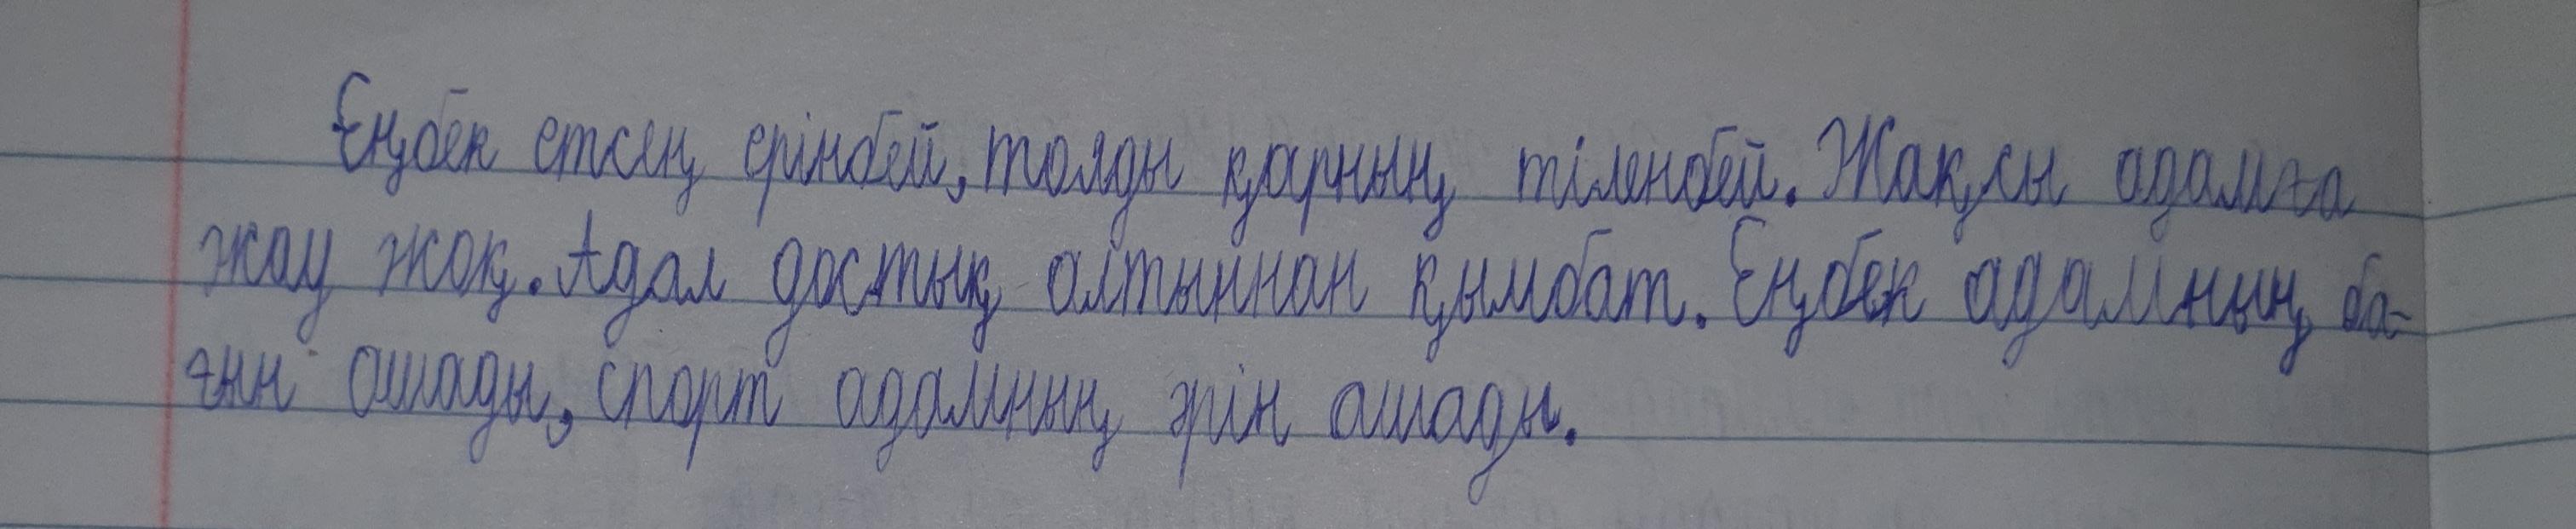 Еңбек етсең ерінбей, тояды қарның тіленбей. Жақсы адамға
жау жоқ. Адал достық алтыннан қымбат. Еңбек адамның ба-
ғын ашады, спорт адамның әрін ашады.